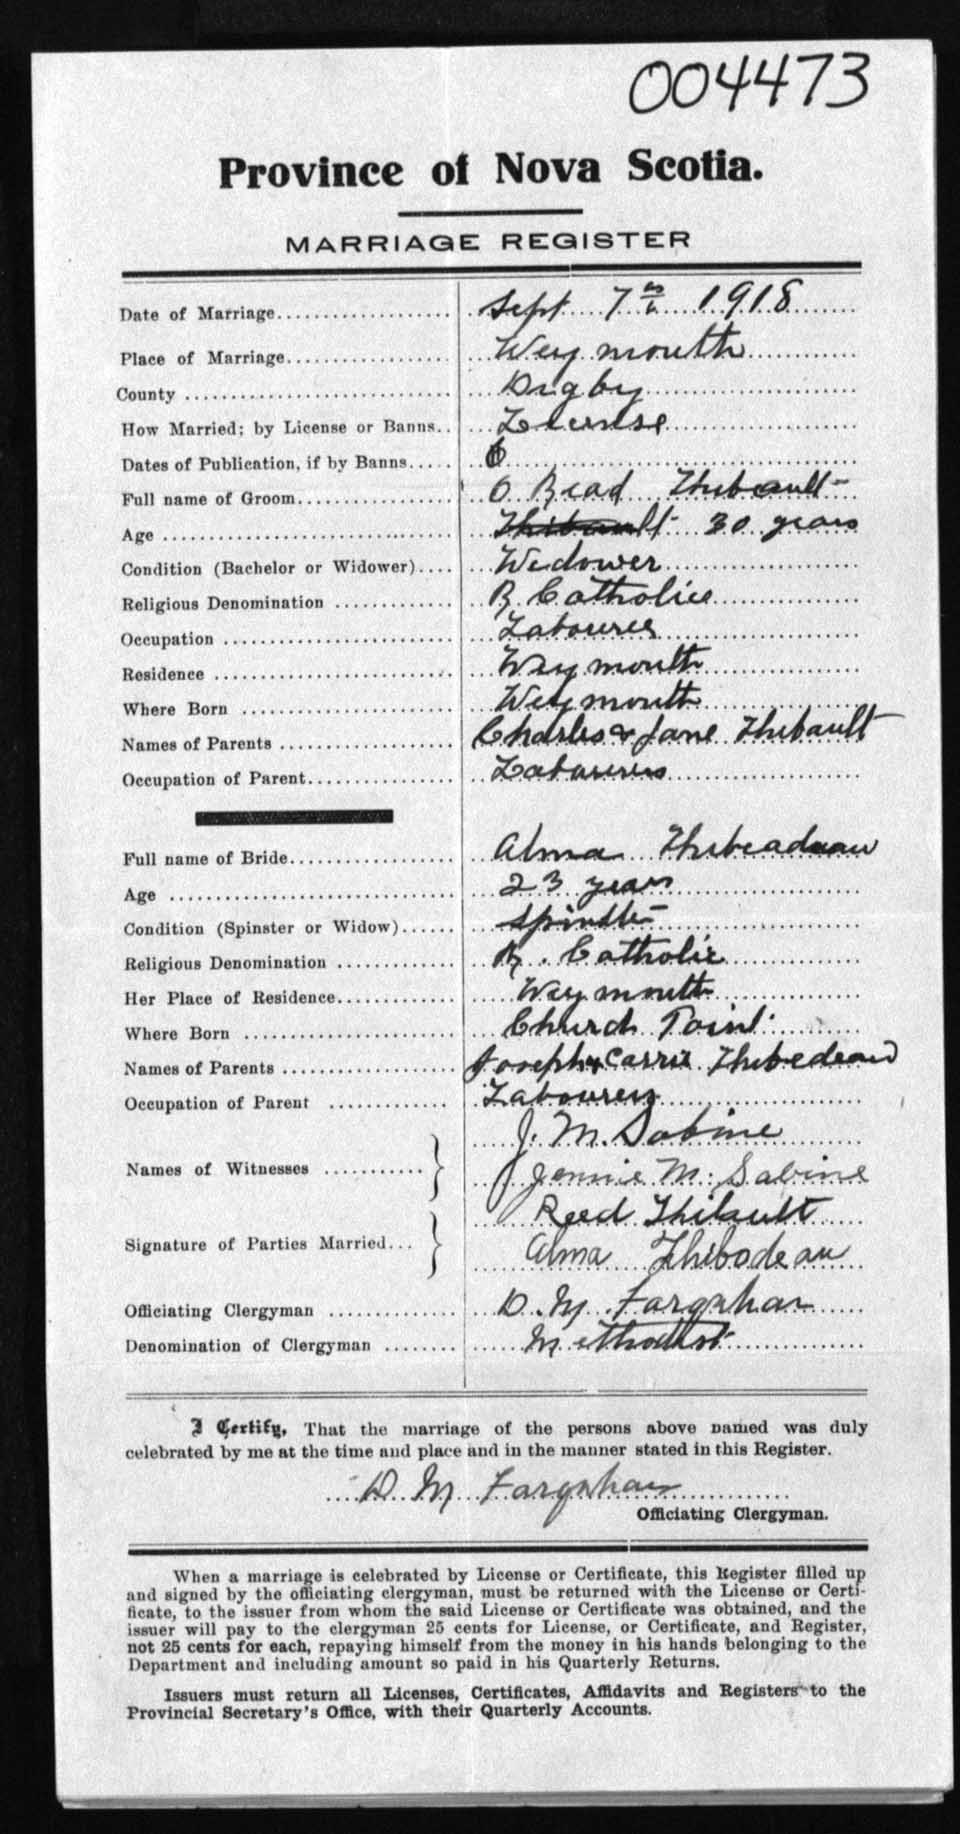 004473
Province of Nova Scotia.
MARRIAGE REGISTER
Date of Marriage Sept 7th 1918
Place of Marriage Weymouth
County Digby
How Married; by License or Banns License
Dates of Publication, if by Banns
Full name of Groom O Read Thibault
Age Thibault 30 years
Condition (Bachelor or Widower) Widower
Religious Denomination R Catholic
Occupation Labourer
Residence Weymouth
Where Born Weymouth
Names of Parents Charles & Jane Thibault
Occupation of Parent Labourers
Full name of Bride Alma Thibeadeau
Age 23 years
Condition (Spinster or Widow) Spinster
Religious Denomination R. Catholic
Her Place of Residence Weymouth
Where Born Church Point
Names of Parents Joseph & Carrie Thibedeau
Occupation of Parent Labourers
J. M. Sabine
Names of Witnesses
Jennie M. Sabine
Reed Thibault
Signature of Parties Married
Alma Thibodeau
Officiating Clergyman D. M. Farquhar
Denomination of Clergyman Methodist
I Certify, That the marriage of the persons above named was duly
celebrated by me at the time and place and in the manner stated in this Register.
D M Farquhar
Officiating Clergyman.
When a marriage is celebrated by License or Certificate, this Register filled up
and signed by the officiating clergyman, must be returned with the License or Certi-
ficate, to the issuer from whom the said License or Certificate was obtained, and the
issuer will pay to the clergyman 25 cents for License, or Certificate, and Register,
not 25 cents for each, repaying himself from the money in his hands belonging to the
Department and including amount so paid in his Quarterly Returns.
Issuers must return all Licenses, Certificates, Affidavits and Registers to the
Provincial Secretary's Office, with their Quarterly Accounts.